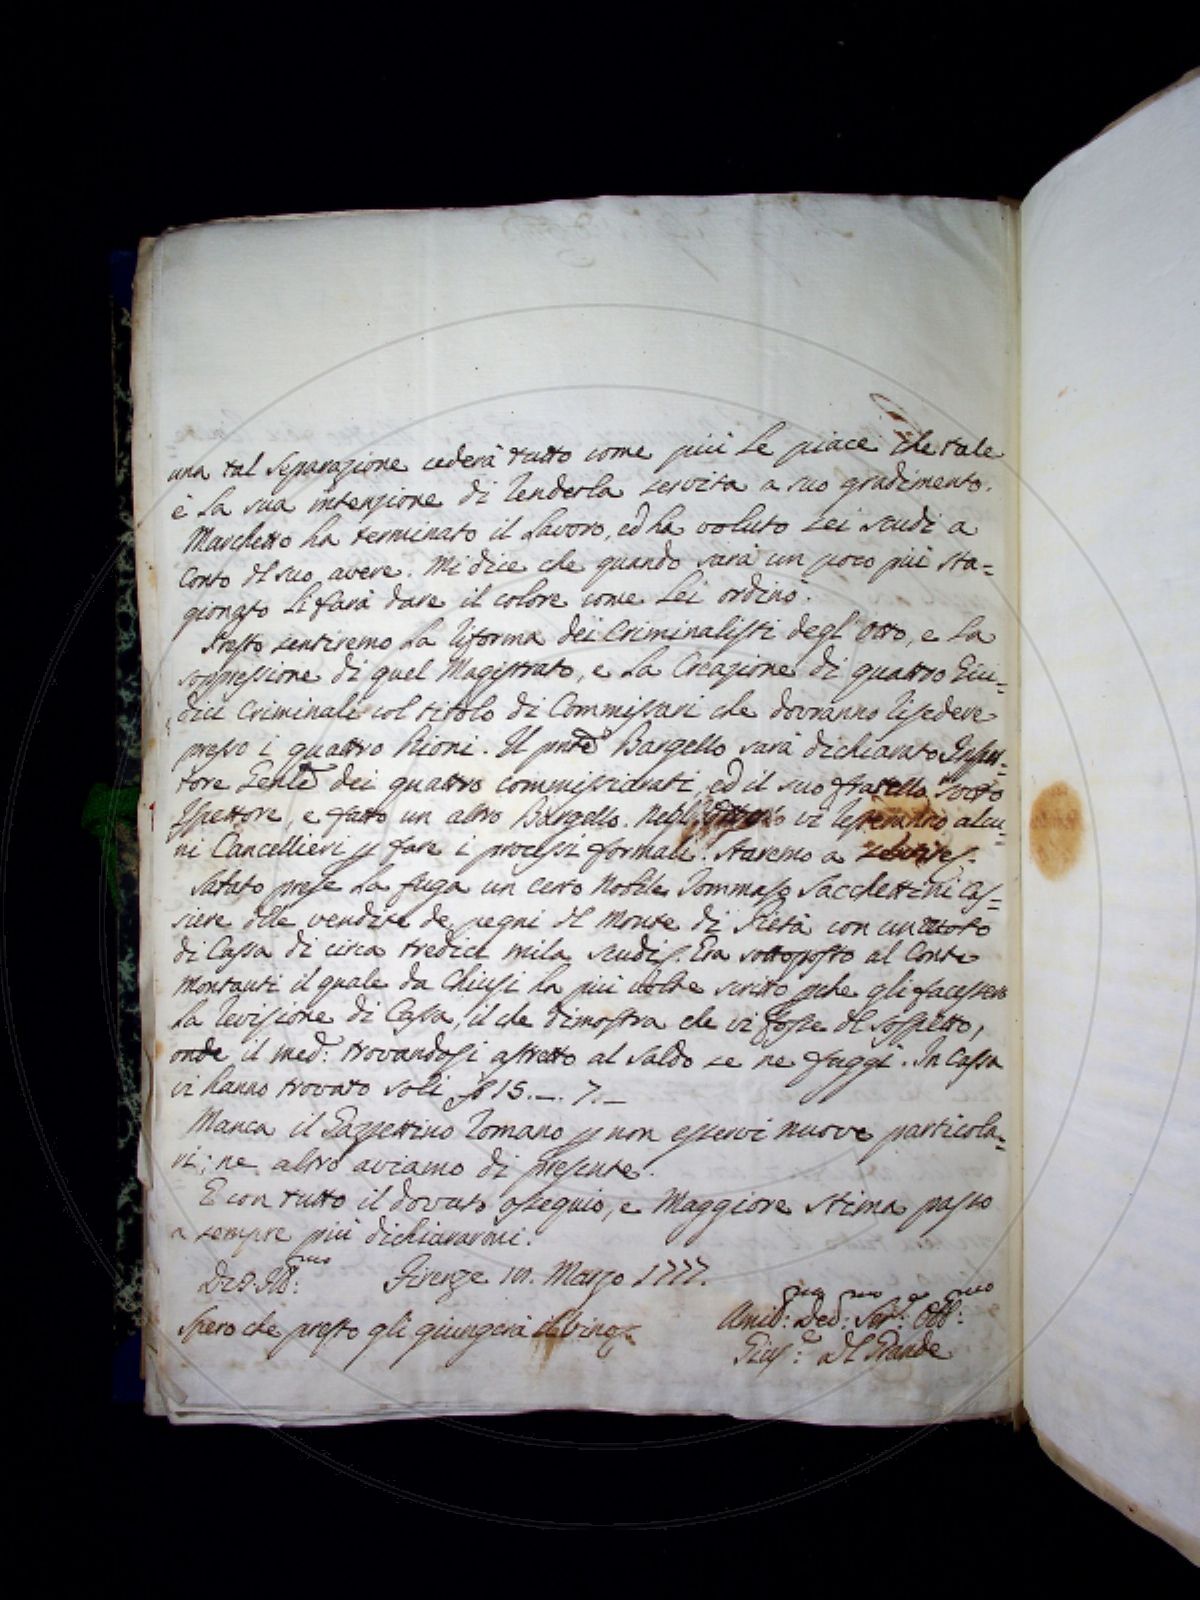 una tal separazione cederà tutto come più Le piace che tale
è la sua intenzione di renderla servita a suo gradimento.
Marchetto ha terminato il lavoro, ed ha voluto sei scudi a
conto del suo avere. Mi dice che quando sarà un poco più sta=
gionato li farà dare il colore come Lei ordino.
Presto sentiremo la riforma dei Criminalisti degl'Otto, e la
soppressione di quel Magistrato, e la Creazione di quattro Giu=
dici Criminali col titolo di Commissari che dovranno risedere
presso i quattro Rioni. Il pnte Bargello sarà dichiarato Ispet=
tore Genle dei quattro commissariati, ed il suo fratello Sotto
Ispettore, e fatto un altro Bargello. Negl' vi resteranno alcu=
ni Cancellieri p fare i processi formali. Staremo a sentire.
Sabato prese la fuga un certo Nobile Tommaso Sacchettini Cas=
siere delle vendite de pegni del Monte di Pietà con un vuoto
di Cassa di circa tredici mila scudi. Era sottoposto al Conte
Montauti il quale da Chiusi ha più volte scritto pche gli facessero
la revisione di Cassa, il che dimostra che vi fosse del sospetto,
onde il med: trovandosi astretto al saldo se ne fuggì. In Cassa
vi hanno trovato soli 15.—.7.—
Manca il Gazzettino Romano p non esservi nuove particola=
ri; ne altro aviamo di presente.
E con tutto il dovuto ossequio, e maggiore stima passo
a sempre più dichiararmi.
Firenze 10. Marzo 1777.
Spero che presto gli giungerà il vino.
Dev: Ser: Obb:
Gius:e Del Grande